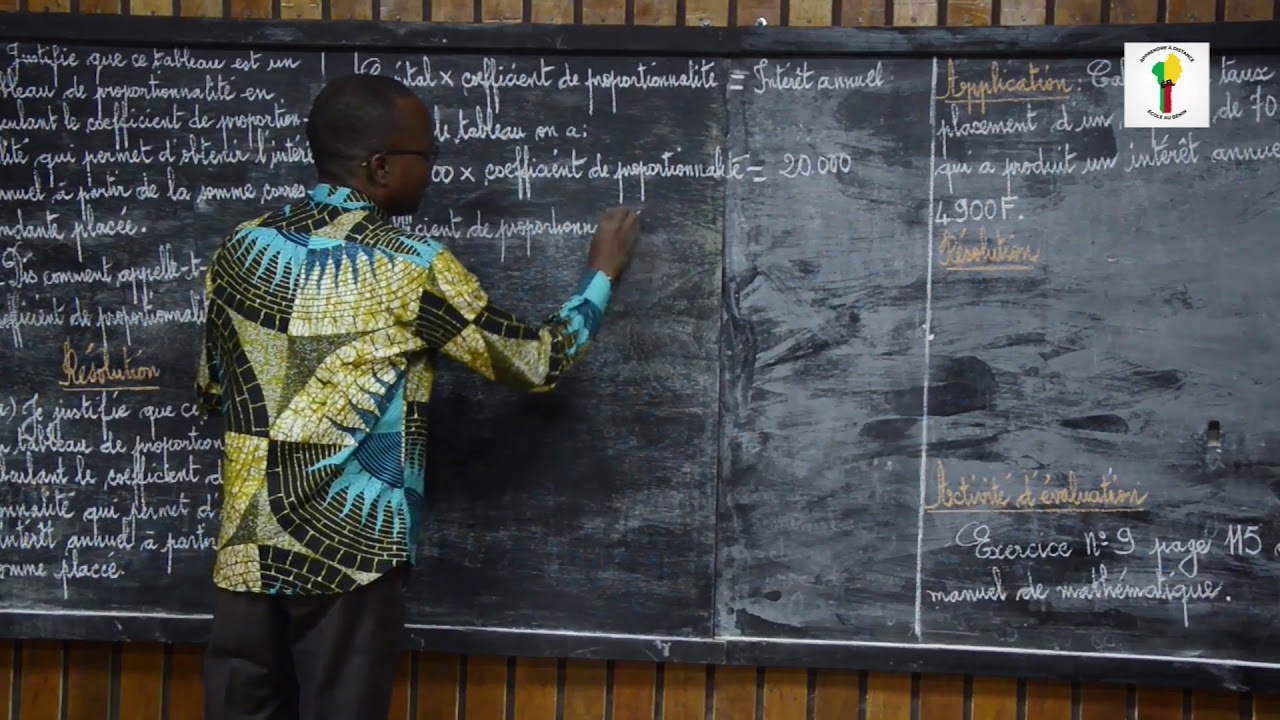 Justifie que ce tableau est un
bleau de proportionnalité en
culant le coefficient de proportion-
lité qui permet d'obtenir l'intér
nnuel à partir de la somme corres
ndante placée.
Dis comment appelle-t-
efficient de proportionnalit
Résolution
Je justifie que ce
tableau de proportion
culant le coefficient d
onnalité qui permet d'
intérêt annuel à partir
omme placée.
Capital × coefficient de proportionnalité = Intérêt annuel
le tableau on a:
00 × coefficient de proportionnalité = 20.000
cient de proportionn
Application: taux
placement d'un de 70
qui a produit un intérêt annue
4.900F.
Résolution
Activité d'évaluation
Exercice N°9 page 115
manuel de mathématique.
APPRENDRE À DISTANCE
ÉCOLE AU BÉNIN